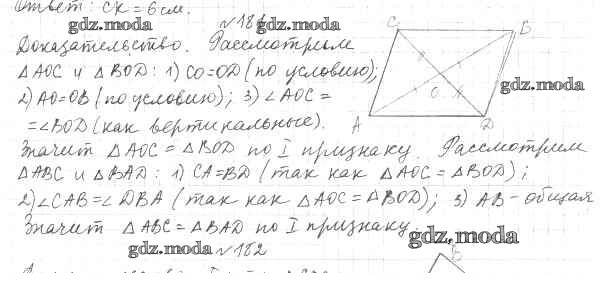 Ответ: СК = 6 см.
gdz.moda №181 gdz.moda
Доказательство. Рассмотрим
△AOC и △BOD: 1) CO=OD (по условию);
2) AO=OB (по условию); 3) ∠AOC =
= ∠BOD (как вертикальные).
C B
O
A D
gdz.moda
Значит △AOC = △BOD по I признаку. Рассмотрим
△ABC и △BAD: 1) CA=BD (так как △AOC = △BOD);
2) ∠CAB = ∠DBA (так как △AOC = △BOD); 3) AB - общая
Значит △ABC = △BAD по I признаку.
gdz.moda №182 gdz.moda